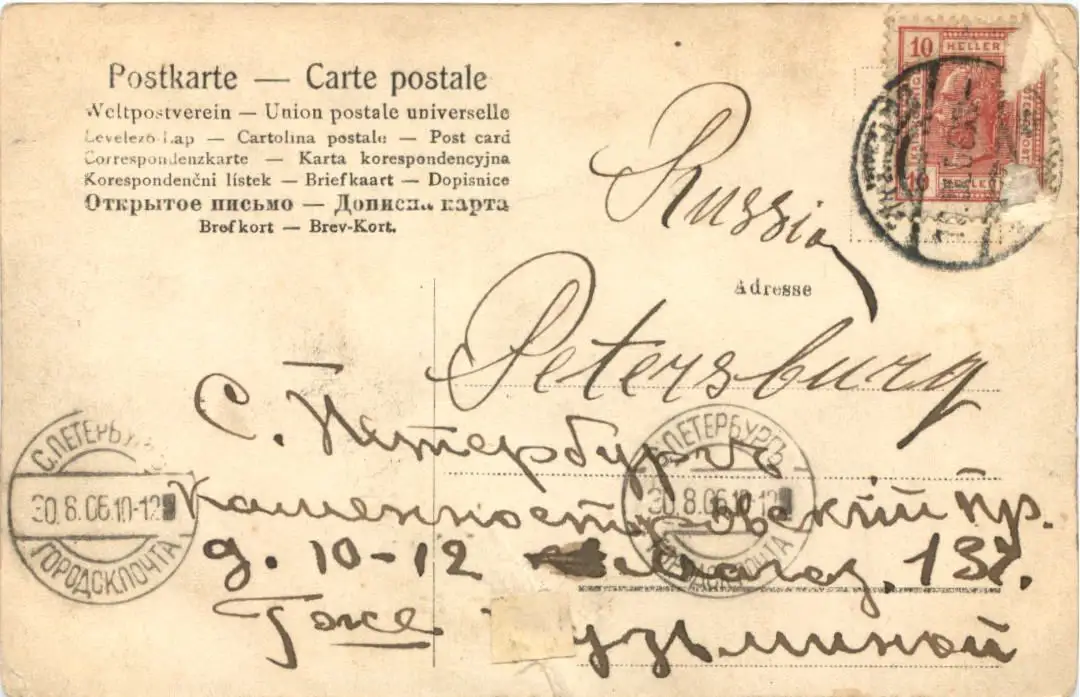 Postkarte — Carte postale
Weltpostverein — Union postale universelle
Levelező-Lap — Cartolina postale — Post card
Correspondenzkarte — Karta korespondencyjna
Korespondenční lístek — Briefkaart — Dopisnice
Открытое письмо — Дописна карта
Brefkort — Brev-Kort.
10 HELLER
10 HELLER
Russia
Adresse
Petersburg
С. Петербургъ
Каменноостровский пр.
д. 10-12 13.
Гоже узьминой
С.ПЕТЕРБУ
30.8.06.10-12
ГОРОДСК.ПОЧТА
С.ПЕТЕРБУРГЪ
30.8.06.10-12